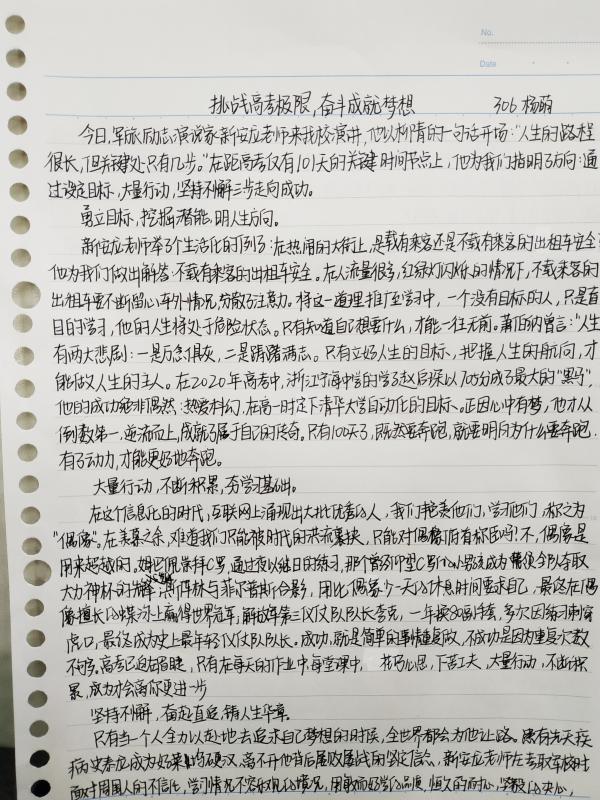 No.
Date
挑战高考极限,奋斗成就梦想 306 杨萌
今日,军旅励志演说家新安应老师来我校演讲,他以柳青的一句话开场:"人生的路程
很长,但关键处只有几步。"在距高考仅有101天的关键时间节点上,他为我们指明了方向:通
过设定目标,大量行动,坚持不懈三步走向成功。
勇立目标,挖掘潜能,明人生方向。
新安应老师举了个生活化的例子:在热闹的大街上,是载有乘客还是不载有乘客的出租车安全?
他为我们做出解答:不载有乘客的出租车安全。在人流量很多,红绿灯闪烁的情况下,不载乘客的
出租车要不断留心车外情况,分散了注意力。将这一道理推广至学习中,一个没有目标的人,只是盲
目的学习,他的人生将处于危险状态。只有知道自己想要什么,才能一往无前。萧伯纳曾言:"人生
有两大悲剧:一是万念俱灰,二是踌躇满志。只有立好人生的目标,把握人生的航向,才
能做人生的主人。在2020年高考中,浙江宁海中学的学子赵启深以700分成了最大的"黑马",
他的成功绝非偶然:热爱科幻,在高一时定下清华大学自动化的目标。正因心中有梦,他才从
倒数第一,逆流而上,成就了属于自己的传奇。只有100天了,既然要奔跑,就要明白为什么要奔跑.
有了动力,才能更好地奔跑。
大量行动,不断积累,夯学习基础。
在这个信息化的时代,互联网上涌现出大批优秀的人,我们艳羡他们,学习他们,称之为
"偶像"。在羡慕之余,难道我们只能被时代的洪流裹挟,只能对偶像府首称臣吗?不,偶像是
用来超越的。姆巴佩崇拜C罗,通过夜以继日的练习,那个曾仰望C罗的小男孩成为帮使全队夺取
大力神杯的先锋;约瑟夫林与菲尔普斯合影,用比偶像少一天的休息时间要求自己,最终在偶
像擅长的蝶泳上赢得世界冠军,解放军第三仪仗队队长李克,一年换80副手套,多次因练习刺穿
虎口,最终成为史上最年轻仪仗队队长。成功,就是简单的事情重复做,不成功是因为重复次数
不够多。高考已迫在眉睫,只有在每天的作业中,每堂课中,花巧心思,下苦工夫,大量行动,不断积
累,成功才会离你更进一步
坚持不懈,奋起直追,铸人生华章。
只有当一个人全力以赴地去追求自己梦想的时候,全世界都会为他让路。患有先天疾
病史泰龙成为好莱坞硬汉,离不开他背后屡败屡战的坚定信念。新安应老师在考取军校时
面对周围人的不信任,学习情况不容乐观的情况,用勤而好学的态度,恒久的耐心,坚毅的决心,